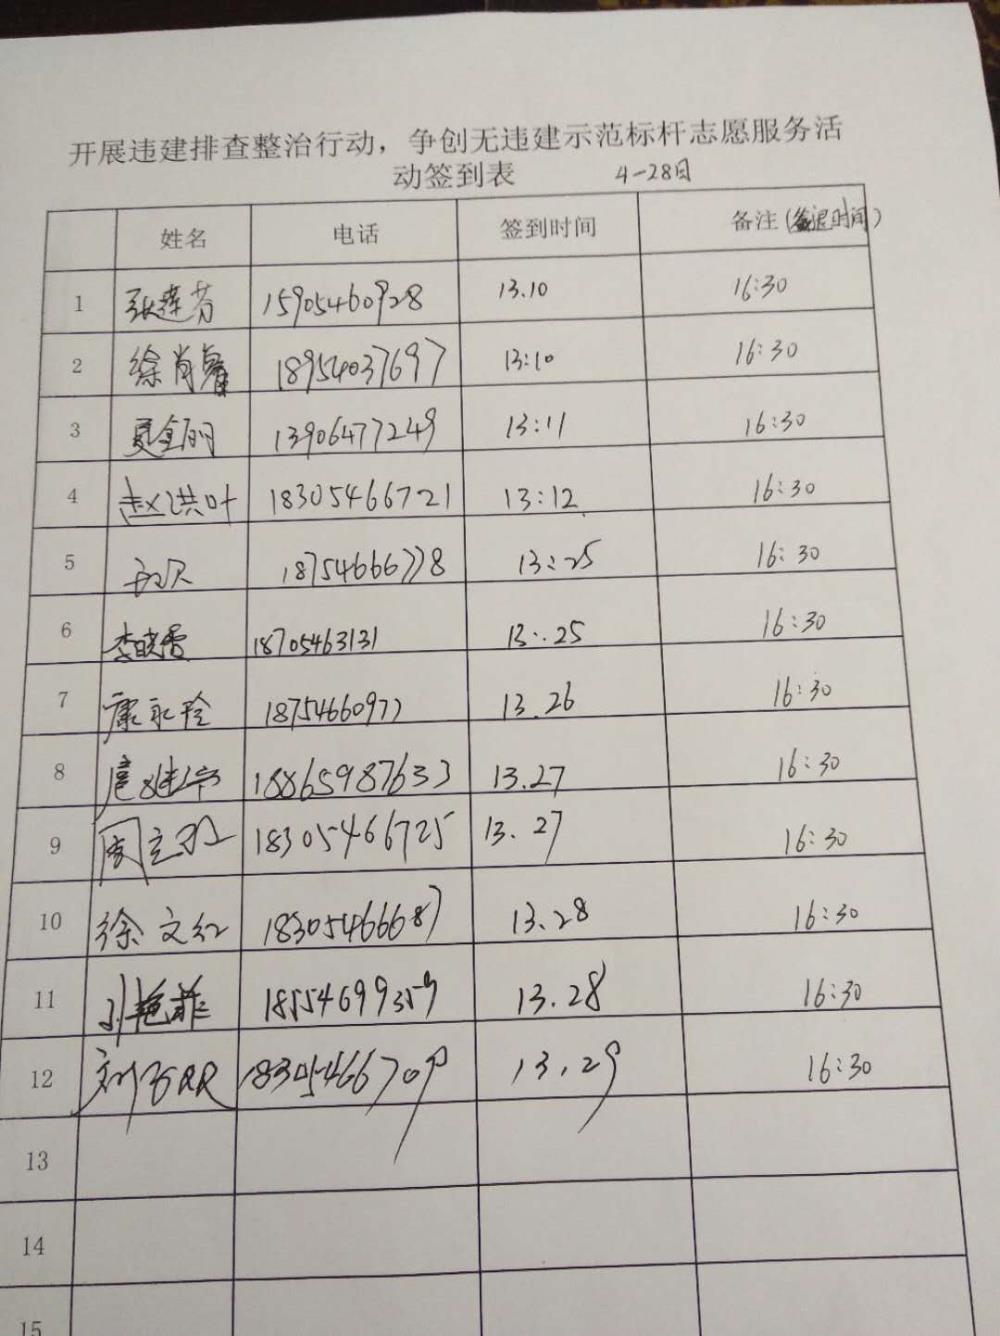 开展违建排查整治行动，争创无违建示范标杆志愿服务活
动签到表 4-28日
姓名 电话 签到时间 备注(签退时间)
1 张莲芳 15905460928 13.10 16:30
2 徐肖睿 18954037697 13:10 16:30
3 夏金丽 13906477249 13:11 16:30
4 赵洪叶 18305466721 13:12 16:30
5 18754666778 13:25 16:30
6 李晓雪 18705463131 13:25 16:30
7 康永玲 18754660977 13.26 16:30
8 18865987633 13.27 16:30
9 周立 18305466725 13.27 16:30
10 徐文红 18305466687 13.28 16:30
11 刘艳菲 18554699359 13.28 16:30
12 刘 18305466709 13.29 16:30
13
14
15